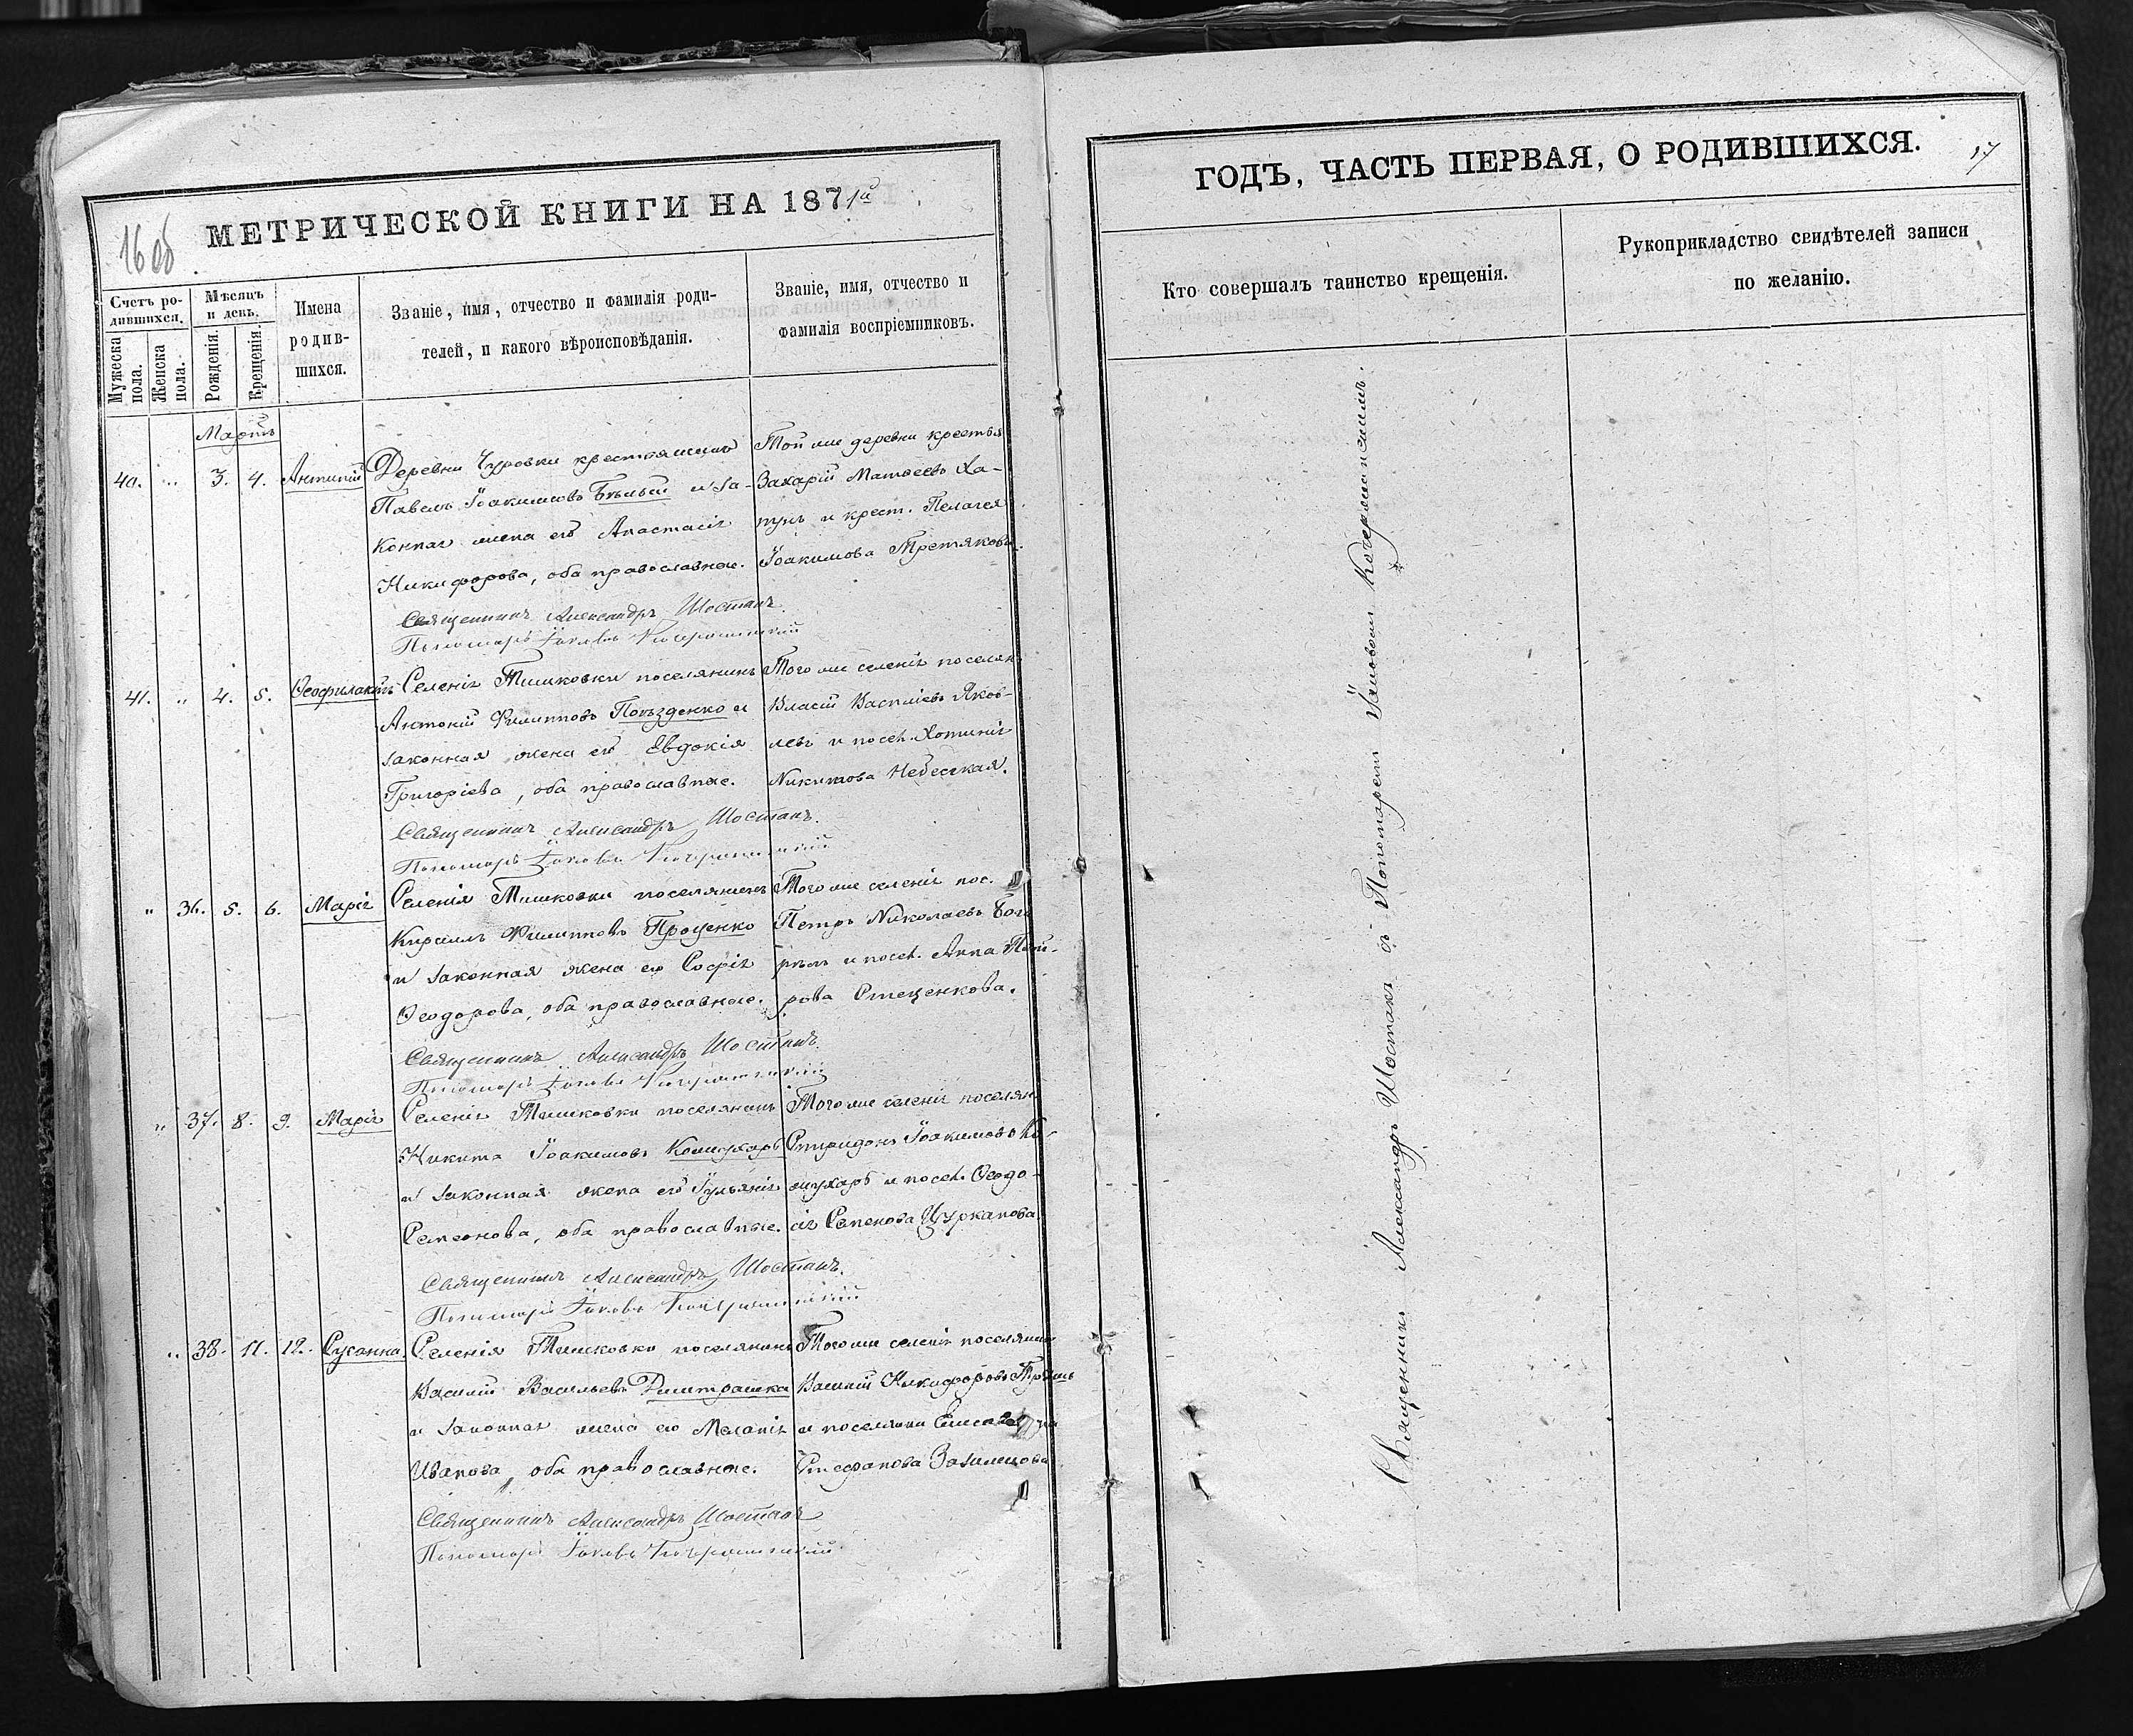 16 об
МЕТРИЧЕСКОЙ КНИГИ НА 1871й
Счетъ ро-
дившихся.
Мужеска
пола.
Женска
пола.
Мѣсяцъ
и день.
Рожденія.
Крещенія.
Имена
родив-
шихся.
Званіе, имя, отчество и фамилія роди-
телей, и какого вѣроисповѣданія.
Званіе, имя, отчество и
фамилія воспріемниковъ.
Мартъ
40. „ 3. 4. Антипій
Деревни Чуровки крестьянинъ
Павелъ Іоакимовъ Бѣлый и за-
конная жена его Анастасія
Никифорова, оба православные.
Той же деревни крестья
Захарій Матвеевъ Ха-
пунъ и крест. Пелагея
Іоакимова Третякова.
Священникъ Александръ Шостакъ
Пономарь Іаковъ
41. „ 4. 5. Ѳеофилактъ
Селенія Тишковки поселянинъ
Антоній Филипповъ Поѣзденко и
законная жена его Евдокія
Григоріева, оба православные.
Того же селенія поселян
Власій Василіевъ Яков-
левъ и посел. Фотинія
Никитова Небесская.
Священникъ Александръ Шостакъ.
Пономарь Іаковъ
„ 36. 5. 6. Марія
Селенія Тишковки поселянинъ
Кириллъ Филипповъ Проценко
и законная жена его Софія
Ѳеодорова, оба православные.
Того же селенія пос.
Петръ Николаевъ
и посел. Анна
рова Стеценкова.
Священникъ Александръ Шостакъ
Пономарь Іаковъ
„ 37. 8. 9. Марія
Селенія Тишковки поселянинъ
Никита Іоакимовъ Кошухарь
и законная жена его Іуліанія
Семеонова, оба православные.
Того же селенія поселян
Спиридонъ Іоакимовъ Ко-
шухарь и посел. Ѳеодо-
сія Семенова Цурканова.
Священникъ Александръ Шостакъ.
Пономарь Іаковъ
„ 38. 11. 12. Сусанна
Селенія Тишковки поселянинъ
Василій Васильевъ Димитрашка
и законная жена его Меланія
Иванова, оба православные.
Того же селенія поселянинъ
Василій Никифоровъ
и поселянки
Стефанова
Священникъ Александръ Шостакъ
Пономарь Іаковъ
ГОДЪ, ЧАСТЬ ПЕРВАЯ, О РОДИВШИХСЯ.
17
Кто совершалъ таинство крещенія.
Рукоприкладство свидѣтелей записи
по желанію.
Священникъ Александръ Шостакъ съ Пономаремъ Іаковомъ